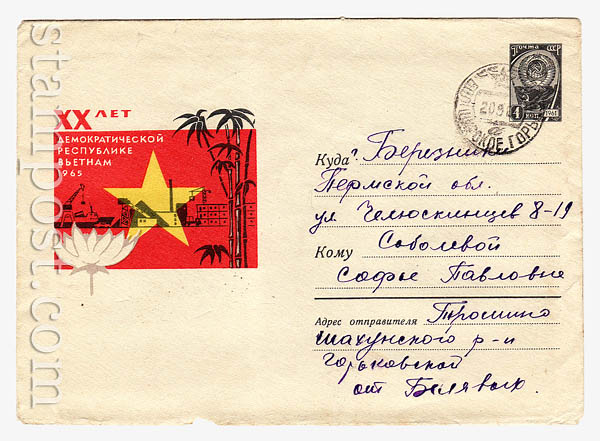 stampost.com
XX ЛЕТ
ДЕМОКРАТИЧЕСКОЙ
РЕСПУБЛИКЕ
ВЬЕТНАМ
1965
Почта СССР
4 коп. 1961
Куда г. Березники
Пермской обл.
ул Челюскинцев 8-19
Кому Соболевой
Софье Павловне
Адрес отправителя
Шахунского р-н
Горьковской
от Белявых.